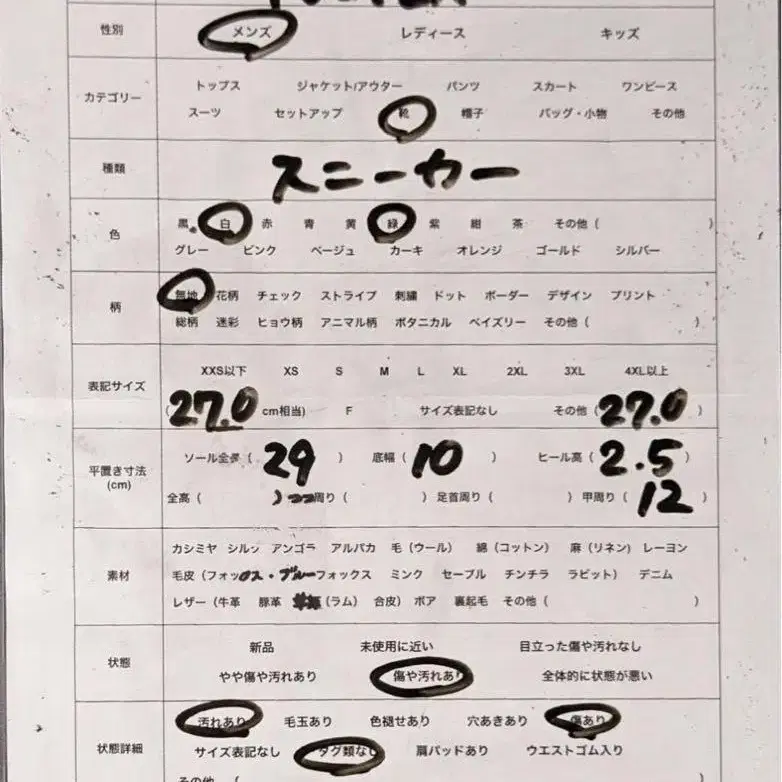 性別 メンズ レディース キッズ
カテゴリー
トップス ジャケット/アウター パンツ スカート ワンピース
スーツ セットアップ 靴 帽子 バッグ・小物 その他
種類 スニーカー
色
黒 白 赤 青 黄 緑 紫 紺 茶 その他 ( )
グレー ピンク ベージュ カーキ オレンジ ゴールド シルバー
柄
無地 花柄 チェック ストライプ 刺繍 ドット ボーダー デザイン プリント
総柄 迷彩 ヒョウ柄 アニマル柄 ボタニカル ペイズリー その他 ( )
表記サイズ
XXS以下 XS S M L XL 2XL 3XL 4XL以上
(27.0 cm相当) F サイズ表記なし その他 (27.0)
平置き寸法
(cm)
ソール全長 ( 29 ) 底幅 ( 10 ) ヒール高 ( 2.5 )
全高 ( ) 周り ( ) 足首周り ( ) 甲周り ( 12 )
素材
カシミヤ シルク アンゴラ アルパカ 毛 (ウール) 綿 (コットン) 麻 (リネン) レーヨン
毛皮 (フォックス・ブルーフォックス ミンク セーブル チンチラ ラビット) デニム
レザー (牛革 豚革 (ラム) 合皮) ボア 裏起毛 その他 ( )
状態
新品 未使用に近い 目立った傷や汚れなし
やや傷や汚れあり 傷や汚れあり 全体的に状態が悪い
状態詳細
汚れあり 毛玉あり 色褪せあり 穴あきあり 傷あり
サイズ表記なし タグ類なし 肩パッドあり ウエストゴム入り
その他 (